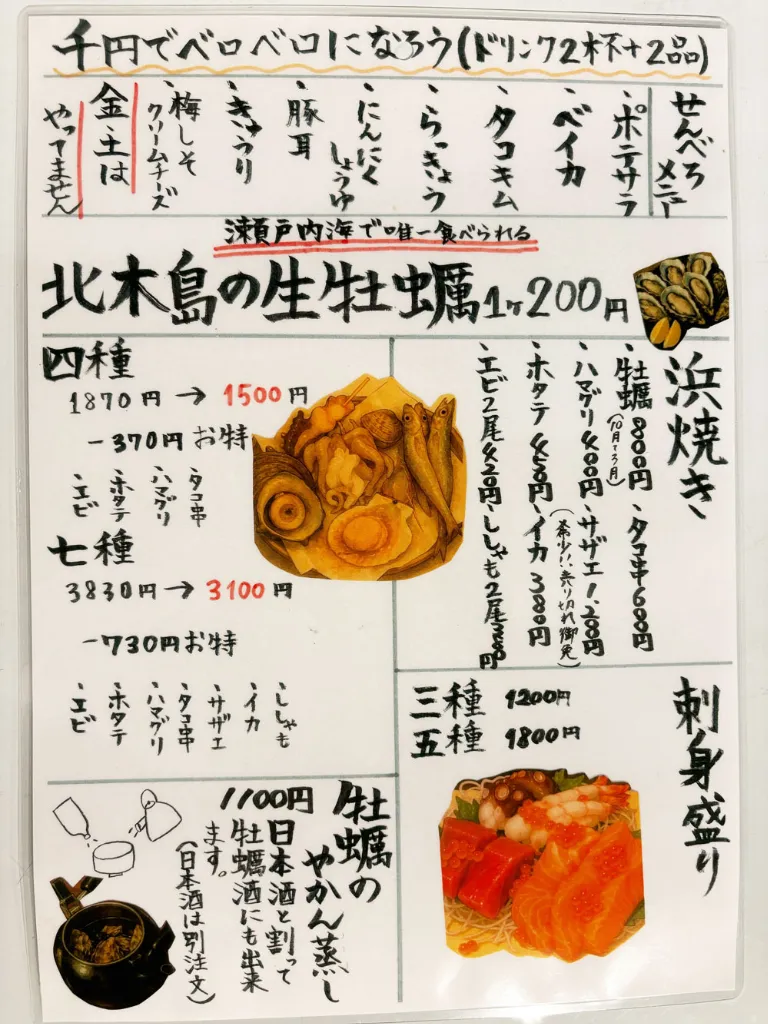 千円でベロベロになろう(ドリンク2杯+2品)
せんべろ
メニュー
・ポテサラ
・ベイカ
・タコキム
・らっきょう
・にんにく
しょうゆ
・豚耳
・きゅうり
・梅しそ
クリームチーズ
金・土は
やってません
瀬戸内海で唯一食べられる
北木島の生牡蠣1ヶ200円
浜焼き
・牡蠣800円
(10月~3月)
・ハマグリ400円
・ホタテ450円
・エビ2尾420円
・タコ串600円
・サザエ1,200円
(希少い、売り切れ御免)
・イカ380円
・ししゃも2尾300円
四種
1870円→1500円
-370円お特
・タコ串
・ハマグリ
・ホタテ
・エビ
七種
3830円→3100円
-730円お特
・ししゃも
・イカ
・サザエ
・タコ串
・ハマグリ
・ホタテ
・エビ
刺身盛り
三種 1200円
五種 1800円
牡蠣の
やかん蒸し
1100円
日本酒と割って
牡蠣酒にも出来
ます。
(日本酒は別注文)